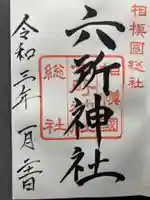 相模國総社
相模國
六所神社
総社
令和三年一月